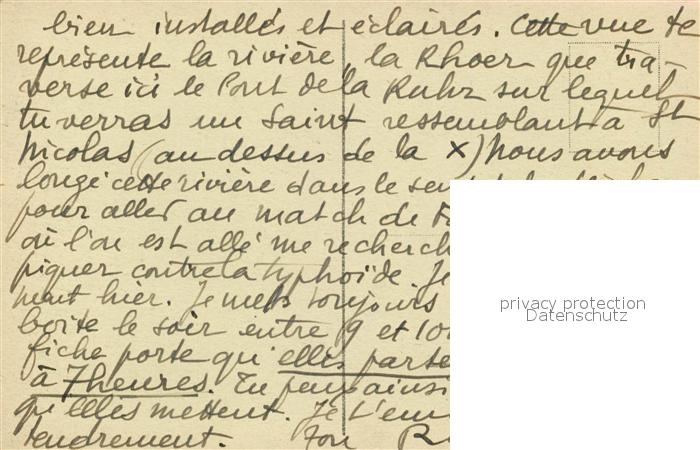 bien installés et éclairés. Cette vue te
représente la rivière, la Rhoer que tra-
verse ici le Pont de la Ruhr sur lequel
tu verras un Saint ressemblant à St
Nicolas (au dessus de la x) Nous avons
longé cette rivière dans le
pour aller au match de
où l'on est allé me recherch
piquer contre la typhoïde. Je
ment hier. Je mets toujours
boîte le soir entre 9 et 10
fiche porte qu'elles parte
à 7 heures. Tu peux ainsi
qu'elles mettent. Je t'em
tendrement. Ton R
privacy protection
Datenschutz